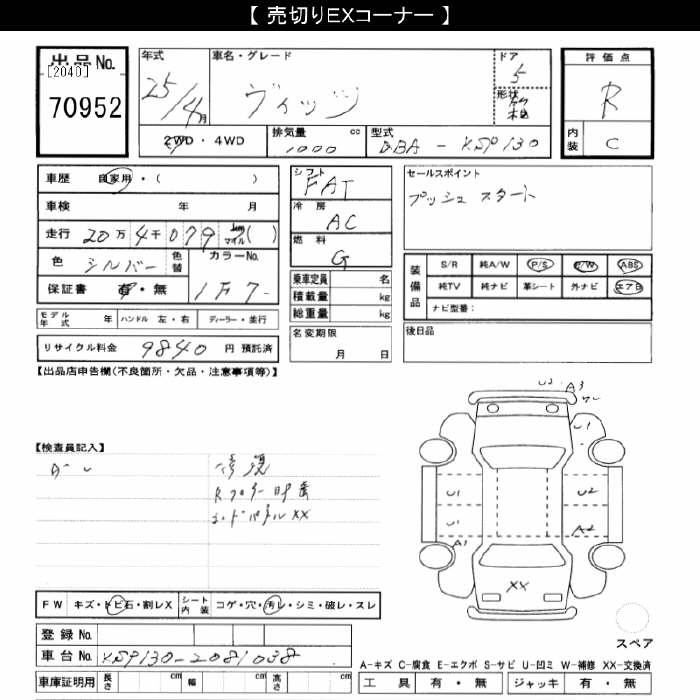 【 売切りEXコーナー 】
出品No.
[2040]
70952
年式
25/4月
車名・グレード
ヴィッツ
ドア
5
形状
評価点
R
内装
C
2WD・4WD
排気量 cc
1000
型式
DBA - KSP130
車歴 自家用・( )
車検 年 月
走行 20万4千079 km マイル ( )
色 シルバー 色替 カラーNo.
保証書 有・無 1F7
モデル年式 年 ハンドル 左・右 ディーラー・並行
リサイクル料金 9840 円 預託済
シフト
FAT
冷房
AC
燃料
G
乗車定員 名
積載量 kg
総重量 kg
名変期限
月 日
セールスポイント
プッシュスタート
装備品
S/R 純A/W P/S P/W ABS
純TV 純ナビ 革シート 外ナビ エアB
ナビ型番:
後日品
【出品店申告欄(不良箇所・欠品・注意事項等)】
【検査員記入】
修現
XX
U2 A3
U1
U1 U2
U1 A2
A1
XX
スペア
FW キズ・トビ石・割レX シート内装 コゲ・穴・汚レ・シミ・破レ・スレ
登録No.
車台No. KSP130-2081038
車庫証明用 長さ cm 幅 cm 高さ cm
A-キズ C-腐食 E-エクボ S-サビ U-凹ミ W-補修 XX-交換済
工具 有・無 ジャッキ 有・無